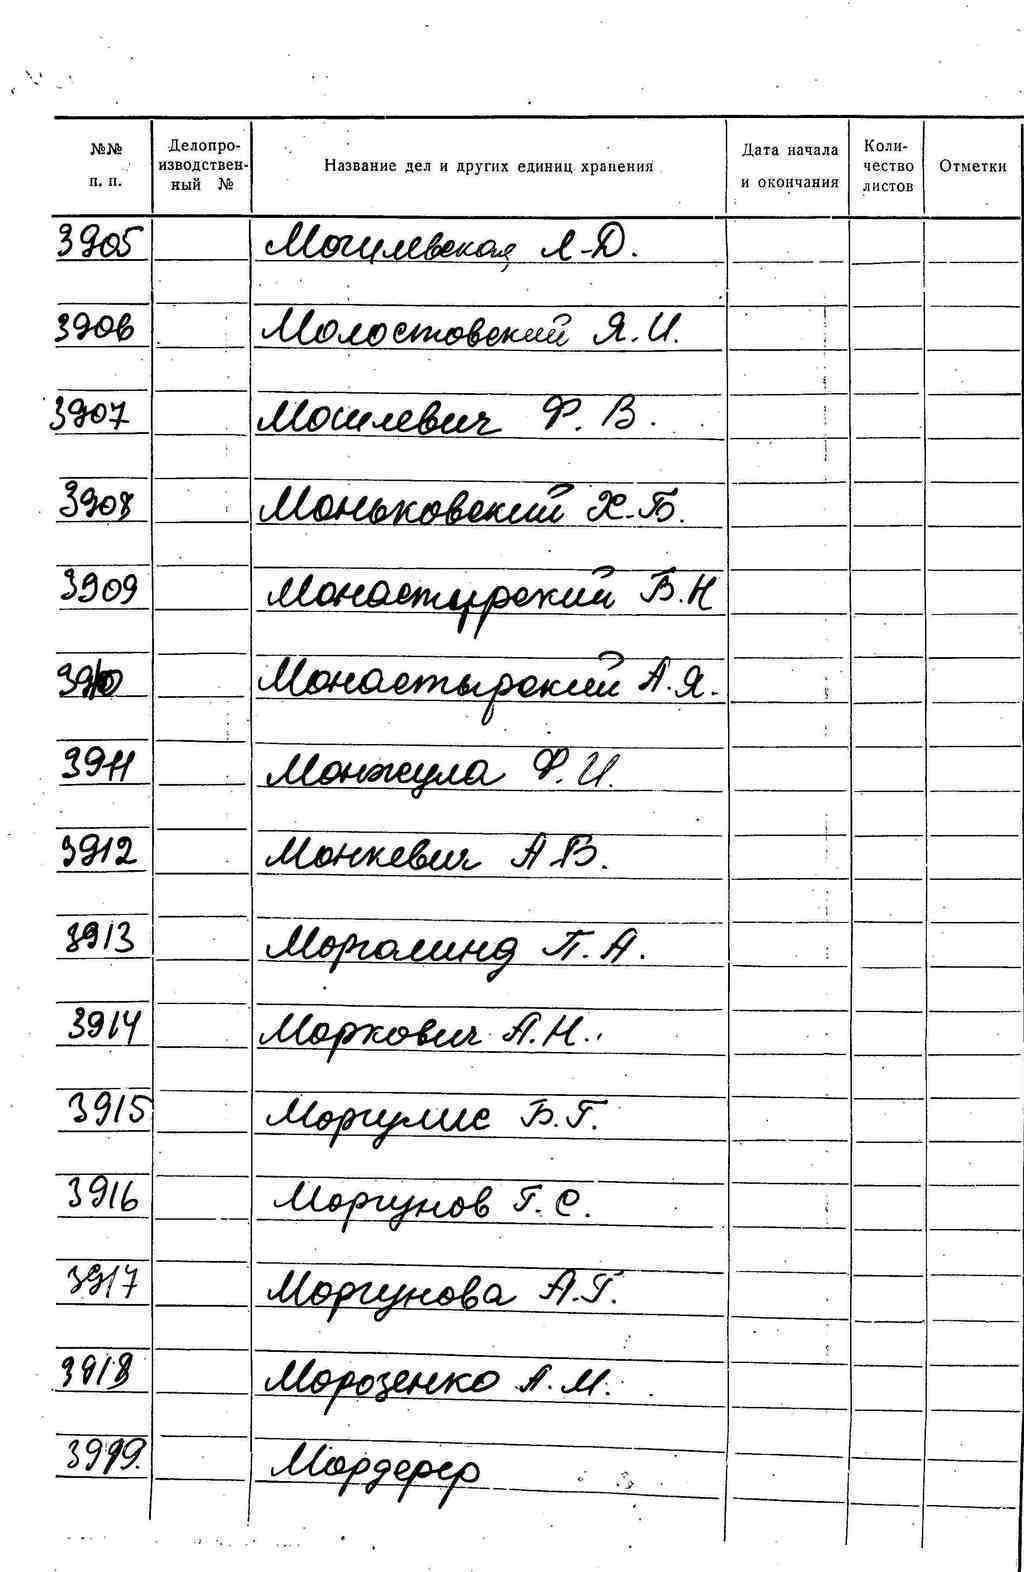 №№ п. п. Делопроизводственный № Название дел и других единиц хранения Дата начала и окончания Количество листов Отметки
3905 Могилевская Л-Д.
3906 Молостовский Я.И.
3907 Мошлевич Ф. В.
3908 Моньковский Х-Б.
3909 Монастырский Б.Н
3910 Монастырский А.Я.
3911 Монжула Ф.И.
3912 Монкевич А В.
3913 Моргалинд П.А.
3914 Моркович А.Н.
3915 Моргулис Б.Г.
3916 Моргунов Г.С.
3917 Моргунова А.Г.
3918 Морозенко А.М.
3919. Мордерер